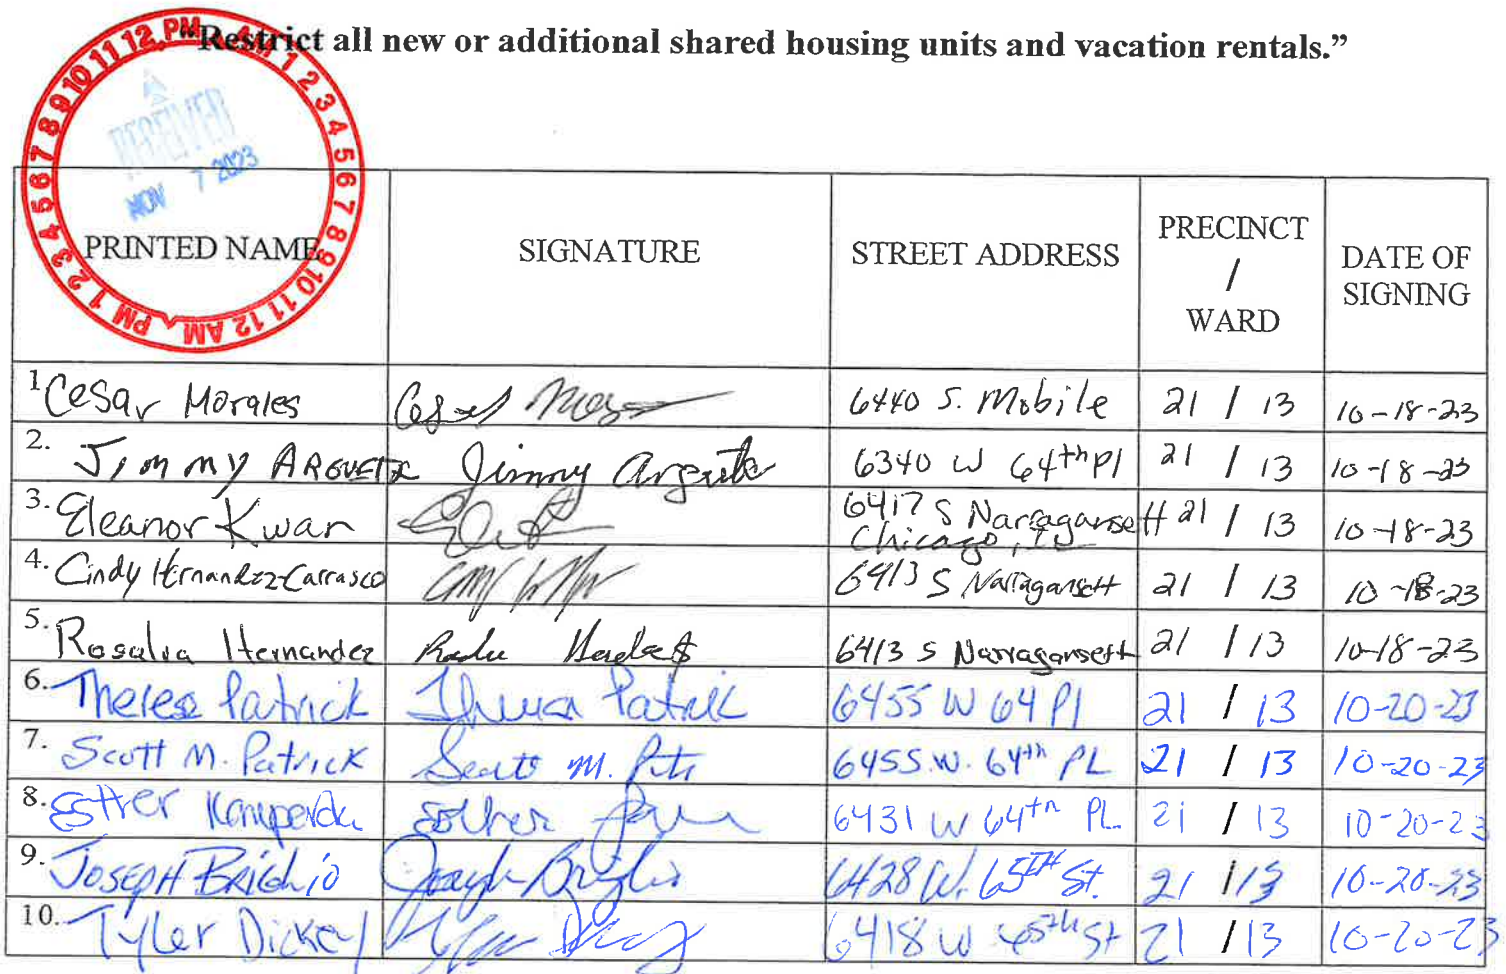 "Restrict all new or additional shared housing units and vacation rentals."
12 PM AM 1 2 3 4 5 6 7 8 9 10 11 12 AM PM 1 2 3 4 5 6 7 8 9 10 11
RECEIVED
NOV 7 2023
PRINTED NAME SIGNATURE STREET ADDRESS PRECINCT / WARD DATE OF SIGNING
1 Cesar Morales 6440 S. Mobile 21 / 13 10-18-23
2. Jimmy ARGUETA Jimmy Argueta 6340 W 64th Pl 21 / 13 10-18-23
3. Eleanor Kwan 6417 S Narragansett 21 / 13 10-18-23
Chicago, IL
4. Cindy Hernandez-Carrasco 6413 S Narragansett 21 / 13 10-18-23
5. Rosalia Hernandez 6413 S Narragansett 21 / 13 10-18-23
6. Therese Patrick Patrick 6455 W 64 Pl 21 / 13 10-20-23
7. Scott M. Patrick Scott M. 6455 W. 64th PL 21 / 13 10-20-23
8. Esther Kamperda Esther 6431 W 64th PL 21 / 13 10-20-23
9. JOSEPH BRIGLIO Joseph Briglio 6428 W. 65TH St. 21 / 13 10-20-23
10. Tyler Dickey 6418 W 65th St 21 / 13 10-20-23